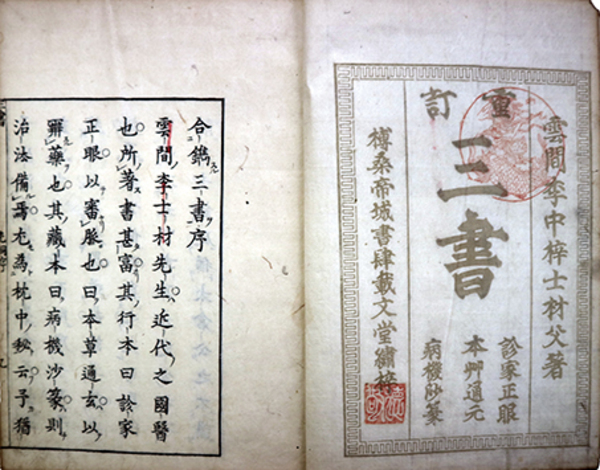 雲間李中梓士材父著
重訂
三書
診家正眼
本艸通元
病機砂篆
榑桑帝城書肆載文堂繡梓
合鐫三書序
雲間李士材先生近代之國醫
也所著書甚富其行本曰診家
正眼以審脈也曰本草通玄以
藥也其藏本曰病機沙篆則
治法備焉尤為枕中秘云予猶